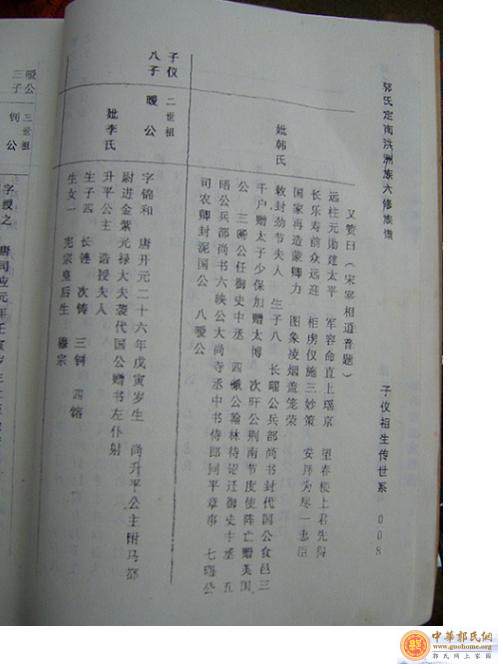 郭氏定南洪洲族六修族谱
子仪祖生传世系
008
又赞曰（宋宰相道晋题）
远柱元勋建太平 军容命直上瑶京 望春楼上君先得
长乐寿前众远迎 柜虏仪施三妙策 安邦为尽一忠臣
国家再造蒙卿力 图象凌烟盖笼荣
妣韩氏
敕封劲节夫人 生子八 长曜公兵部尚书封代国公食邑三
千户赠太子少保加赠太傅 次旰公荆南节度使阵亡赠英国
公 三晞公任御史中丞 四 公翰林待诏迁御史中丞 五
晤公兵部尚书六 公大尚寺丞中书侍郎同平章事 七 公
司农卿封 国公 八暧公
子仪
八子
二世祖
暧公
字锦和 唐开元二十六年戊寅岁生 尚升平公主附马都
尉进金紫光禄大夫袭代国公赠书左仆射
妣李氏
升平公主 诰授夫人
生子四 长铿 次铸 三钊 四镕
生女一 宪宗皇后生 穆宗
暧公
三子
三世祖
钊公
字授之 唐司
应元年壬寅岁
中華郭氏網
www.guohome.org
郭氏网上家园